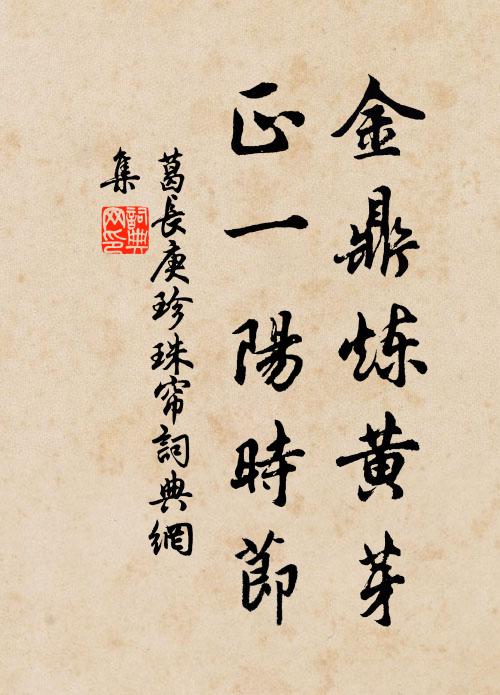 金鼎炼黄芽
正一陽時節
葛長庚珍珠帘詞典網
集
詞典網印